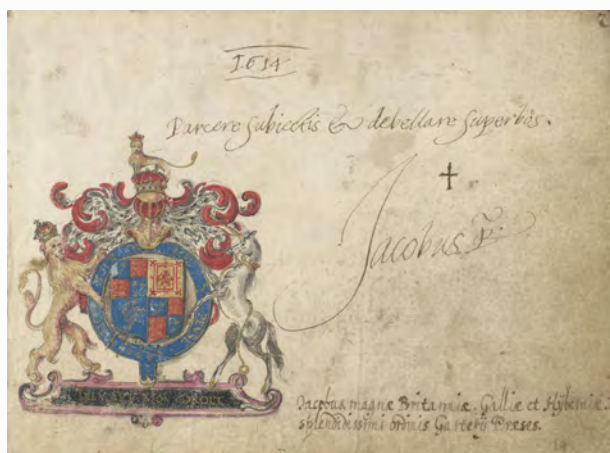 1614
Parcere subiectis & debellare superbos.
Jacobus R.
DIEV ET MON DROIT
Jacobus magnæ Britanniæ. Galliæ et Hÿberniæ.
splendidissimi ordinis Garterÿ Præses.